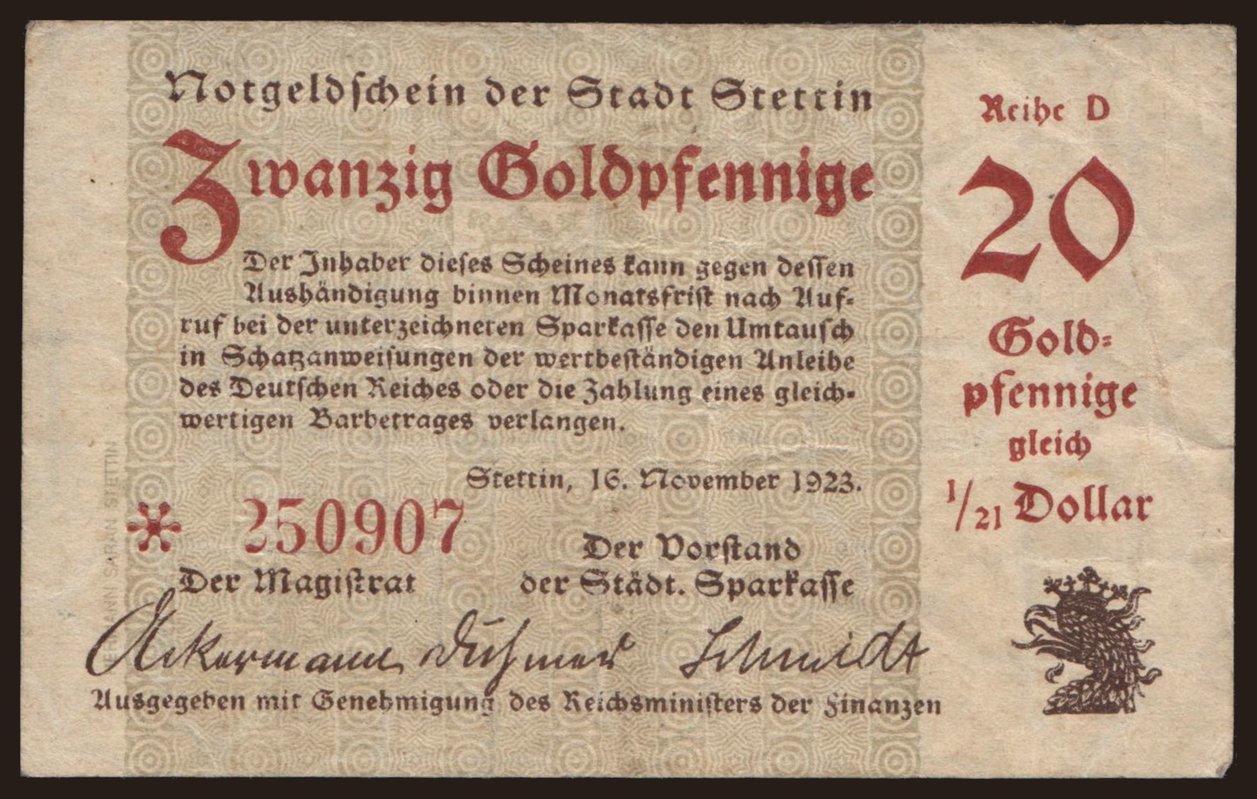 Notgeldschein der Stadt Stettin
Zwanzig Goldpfennige
Der Inhaber dieses Scheines kann gegen dessen
Aushändigung binnen Monatsfrist nach Auf-
ruf bei der unterzeichneten Sparkasse den Umtausch
in Schatzanweisungen der wertbeständigen Anleihe
des Deutschen Reiches oder die Zahlung eines gleich-
wertigen Barbetrages verlangen.
Stettin, 16. November 1923.
* 250907
Der Magistrat
Der Vorstand
der Städt. Sparkasse
Ackermann
Schmidt
Ausgegeben mit Genehmigung des Reichsministers der Finanzen
Reihe D
20
Gold-
pfennige
gleich
1/21 Dollar
STETTIN